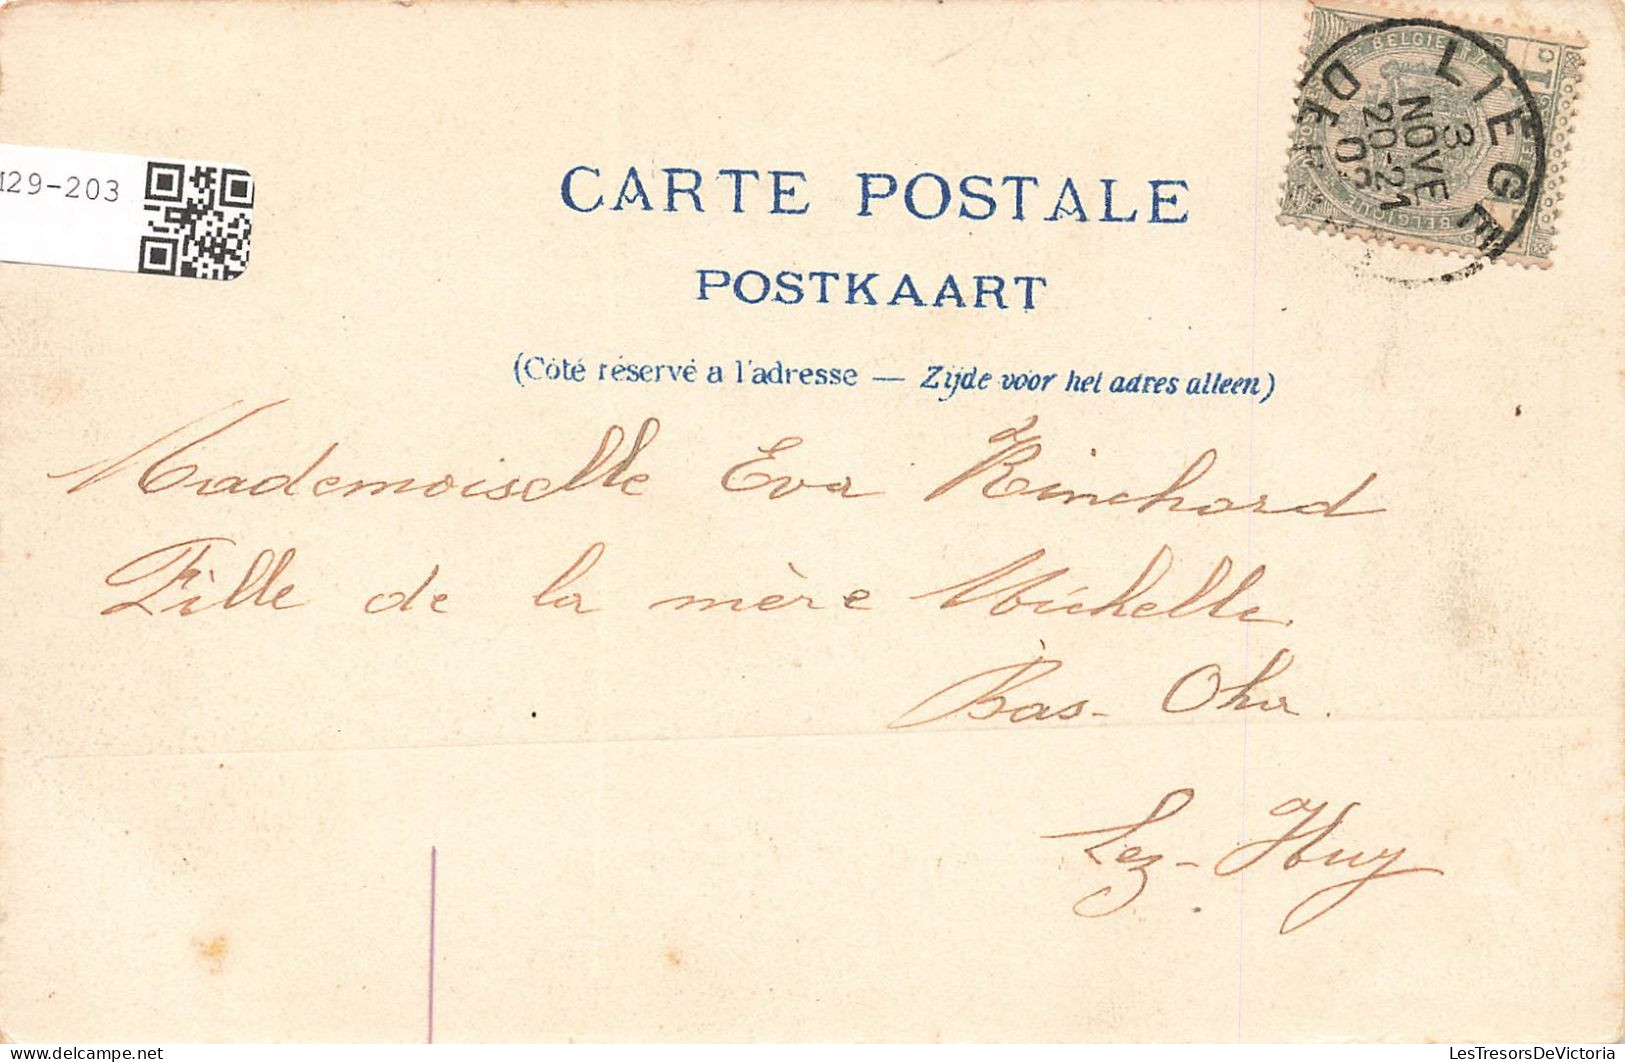 129-203
CARTE POSTALE
POSTKAART
(Côté réservé a l'adresse — Zijde voor het adres alleen)
BELGIE
LIEGE
3
NOVE
20-21
03
BELGIQUE
Mademoiselle Eva Rinchard
Fille de la mère Michelle
Bas-Oha.
Lez-Huy
LesTresorsDeVictoria